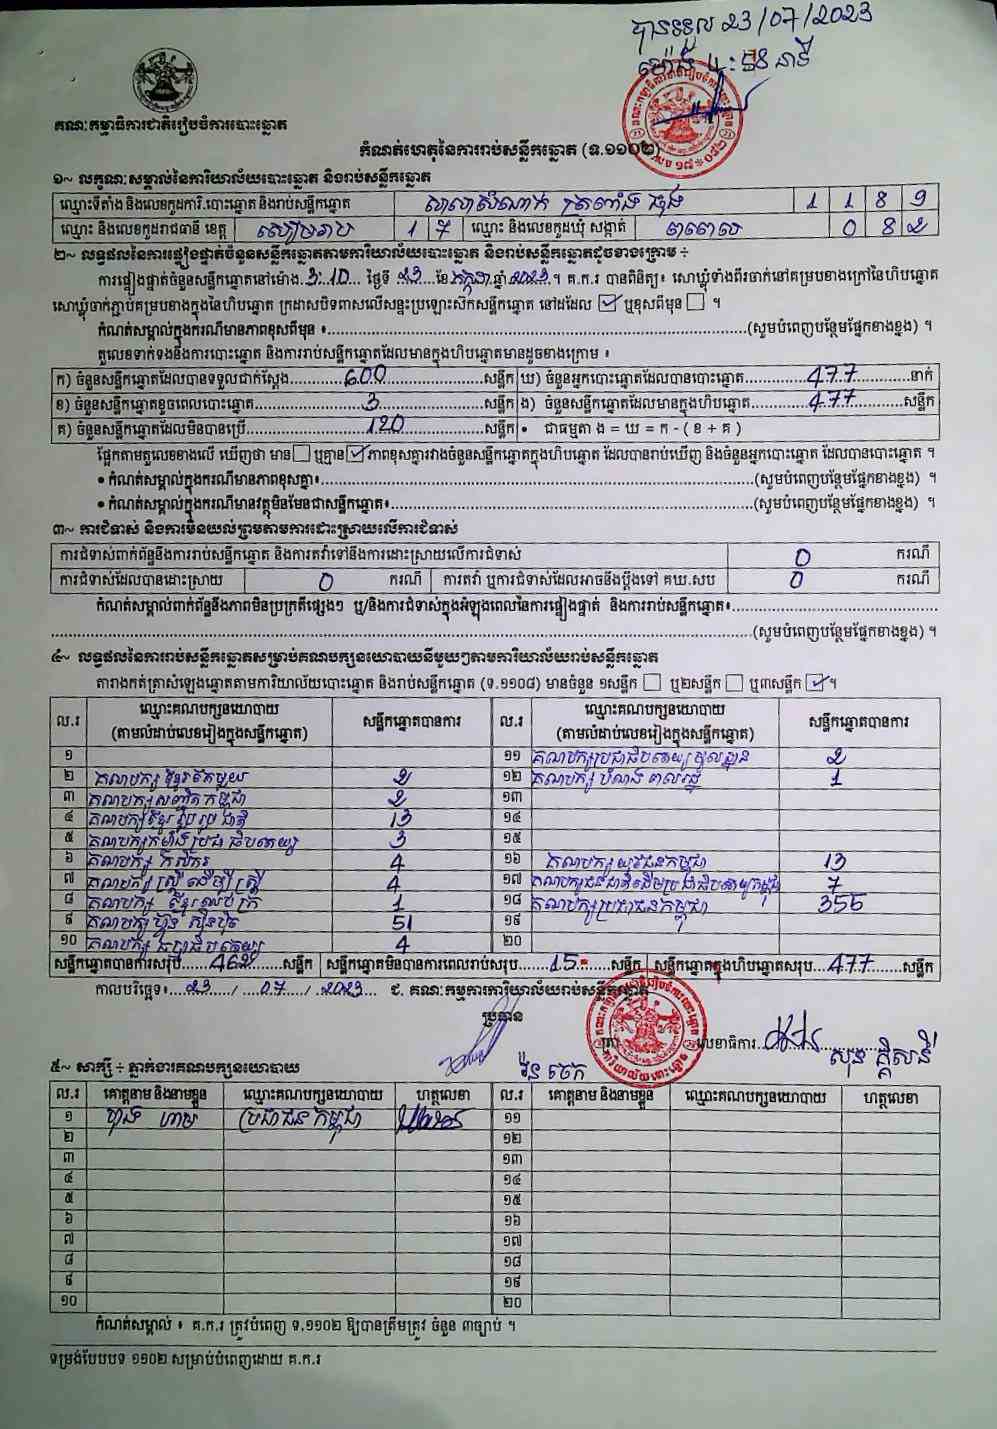 បានទទួល 23/07/2023
ម៉ោង 4:58 នាទី
គណៈកម្មាធិការជាតិរៀបចំការបោះឆ្នោត
កំណត់ហេតុនៃការរាប់សន្លឹកឆ្នោត (ទ.១១០២)
១~ លក្ខណៈសម្គាល់នៃការិយាល័យបោះឆ្នោត និងរាប់សន្លឹកឆ្នោត
ឈ្មោះទីតាំង និងលេខកូដការិ.បោះឆ្នោត និងរាប់សន្លឹកឆ្នោត សាលាសំណាក់ ត្រពាំង 1 1 8 9
ឈ្មោះ និងលេខកូដរាជធានី ខេត្ត សៀមរាប 1 7 ឈ្មោះ និងលេខកូដឃុំ សង្កាត់ ពពេល 0 8 2
២~ លទ្ធផលនៃការផ្ទៀងផ្ទាត់ចំនួនសន្លឹកឆ្នោតតាមការិយាល័យបោះឆ្នោត និងរាប់សន្លឹកឆ្នោតដូចខាងក្រោម ÷
ការផ្ទៀងផ្ទាត់ចំនួនសន្លឹកឆ្នោតនៅម៉ោង 3:10 ថ្ងៃទី 23 ខែ កក្កដា ឆ្នាំ 2023 ។ គ.ក.រ បានពិនិត្យ៖ សោឃ្លុំទាំងពីរចាក់នៅគម្របខាងក្រៅនៃហិបឆ្នោត
សោឃ្លុំចាក់ភ្ជាប់គម្របខាងក្នុងនៃហិបឆ្នោត ក្រដាសបិទពាសលើសន្ទះប្រឡោះស៊កសន្លឹកឆ្នោត នៅដដែល ☑ ឬខុសពីមុន ☐ ។
កំណត់សម្គាល់ក្នុងករណីមានភាពខុសពីមុន ៖ (សូមបំពេញបន្ថែមផ្នែកខាងខ្នង) ។
តួលេខទាក់ទងនឹងការបោះឆ្នោត និងការរាប់សន្លឹកឆ្នោតដែលមានក្នុងហិបឆ្នោតមានដូចខាងក្រោម ៖
ក) ចំនួនសន្លឹកឆ្នោតដែលបានទទួលជាក់ស្តែង 600 សន្លឹក ឃ) ចំនួនអ្នកបោះឆ្នោតដែលបានបោះឆ្នោត 477 នាក់
ខ) ចំនួនសន្លឹកឆ្នោតខូចពេលបោះឆ្នោត 3 សន្លឹក ង) ចំនួនសន្លឹកឆ្នោតដែលមានក្នុងហិបឆ្នោត 477 សន្លឹក
គ) ចំនួនសន្លឹកឆ្នោតដែលមិនបានប្រើ 120 សន្លឹក • ជាធម្មតា ង = ឃ = ក - ( ខ + គ )
ផ្អែកតាមតួលេខខាងលើ ឃើញថា មាន ☐ ឬគ្មាន ☑ ភាពខុសគ្នារវាងចំនួនសន្លឹកឆ្នោតក្នុងហិបឆ្នោត ដែលបានរាប់ឃើញ និងចំនួនអ្នកបោះឆ្នោត ដែលបានបោះឆ្នោត ។
• កំណត់សម្គាល់ក្នុងករណីមានភាពខុសគ្នា៖ (សូមបំពេញបន្ថែមផ្នែកខាងខ្នង) ។
• កំណត់សម្គាល់ក្នុងករណីមានវត្ថុមិនមែនជាសន្លឹកឆ្នោត៖ (សូមបំពេញបន្ថែមផ្នែកខាងខ្នង) ។
៣~ ការជំទាស់ និងការមិនយល់ព្រមតាមការដោះស្រាយលើការជំទាស់
ការជំទាស់ពាក់ព័ន្ធនឹងការរាប់សន្លឹកឆ្នោត និងការតវ៉ាទៅនឹងការដោះស្រាយលើការជំទាស់ 0 ករណី
ការជំទាស់ដែលបានដោះស្រាយ 0 ករណី ការតវ៉ា ឬការជំទាស់ដែលអាចនឹងប្តឹងទៅ គឃ.សប 0 ករណី
កំណត់សម្គាល់ពាក់ព័ន្ធនឹងភាពមិនប្រក្រតីផ្សេងៗ ឬ/និងការជំទាស់ក្នុងអំឡុងពេលនៃការផ្ទៀងផ្ទាត់ និងការរាប់សន្លឹកឆ្នោត៖
(សូមបំពេញបន្ថែមផ្នែកខាងខ្នង) ។
៤~ លទ្ធផលនៃការរាប់សន្លឹកឆ្នោតសម្រាប់គណបក្សនយោបាយនីមួយៗតាមការិយាល័យរាប់សន្លឹកឆ្នោត
តារាងកត់ត្រាសំឡេងឆ្នោតតាមការិយាល័យបោះឆ្នោត និងរាប់សន្លឹកឆ្នោត (ទ.១១០៨) មានចំនួន ១សន្លឹក ☐ ឬ២សន្លឹក ☐ ឬ៣សន្លឹក ☑ ។
ល.រ ឈ្មោះគណបក្សនយោបាយ (តាមលំដាប់លេខរៀងក្នុងសន្លឹកឆ្នោត) សន្លឹកឆ្នោតបានការ ល.រ ឈ្មោះគណបក្សនយោបាយ (តាមលំដាប់លេខរៀងក្នុងសន្លឹកឆ្នោត) សន្លឹកឆ្នោតបានការ
១ ១១ គណបក្សប្រជាធិបតេយ្យមូលដ្ឋាន 2
២ គណបក្ស ខ្មែររួបរួម 2 ១២ គណបក្ស បំណងពលរដ្ឋ 1
៣ គណបក្សសញ្ជាតិកម្ពុជា 2 ១៣
៤ គណបក្សខ្មែរ រួបរួម ជាតិ 13 ១៤
៥ គណបក្សកម្លាំងប្រជាធិបតេយ្យ 3 ១៥
៦ គណបក្ស កសិករ 4 ១៦ គណបក្ស យុវជនកម្ពុជា 13
៧ គណបក្ស ស្ត្រី ដើម្បី ស្ត្រី 4 ១៧ គណបក្សជនជាតិដើមប្រជាធិបតេយ្យកម្ពុជា 7
៨ គណបក្ស ខ្មែរឈប់ក្រ 1 ១៨ គណបក្សប្រជាជនកម្ពុជា 355
៩ គណបក្ស ហ្វ៊ុនស៊ិនប៉ិច 51 ១៩
១០ គណបក្ស ធម្មាធិបតេយ្យ 4 ២០
សន្លឹកឆ្នោតបានការសរុប 462 សន្លឹក សន្លឹកឆ្នោតមិនបានការពេលរាប់សរុប 15 សន្លឹក សន្លឹកឆ្នោតក្នុងហិបឆ្នោតសរុប 477 សន្លឹក
កាលបរិច្ឆេទ៖ 23 / 07 / 2023 ជ. គណៈកម្មការការិយាល័យរាប់សន្លឹកឆ្នោត
ប្រធាន
លេខាធិការ
វ៉ន ចេក
សុន
៥~ សាក្សី ÷ ភ្នាក់ងារគណបក្សនយោបាយ
ល.រ គោត្តនាម និងនាមខ្លួន ឈ្មោះគណបក្សនយោបាយ ហត្ថលេខា ល.រ គោត្តនាម និងនាមខ្លួន ឈ្មោះគណបក្សនយោបាយ ហត្ថលេខា
១ ប្រជាជនកម្ពុជា ១១
២ ១២
៣ ១៣
៤ ១៤
៥ ១៥
៦ ១៦
៧ ១៧
៨ ១៨
៩ ១៩
១០ ២០
កំណត់សម្គាល់ ៖ គ.ក.រ ត្រូវបំពេញ ទ.១១០២ ឱ្យបានត្រឹមត្រូវ ចំនួន ៣ច្បាប់ ។
ទម្រង់បែបបទ ១១០២ សម្រាប់បំពេញដោយ គ.ក.រ